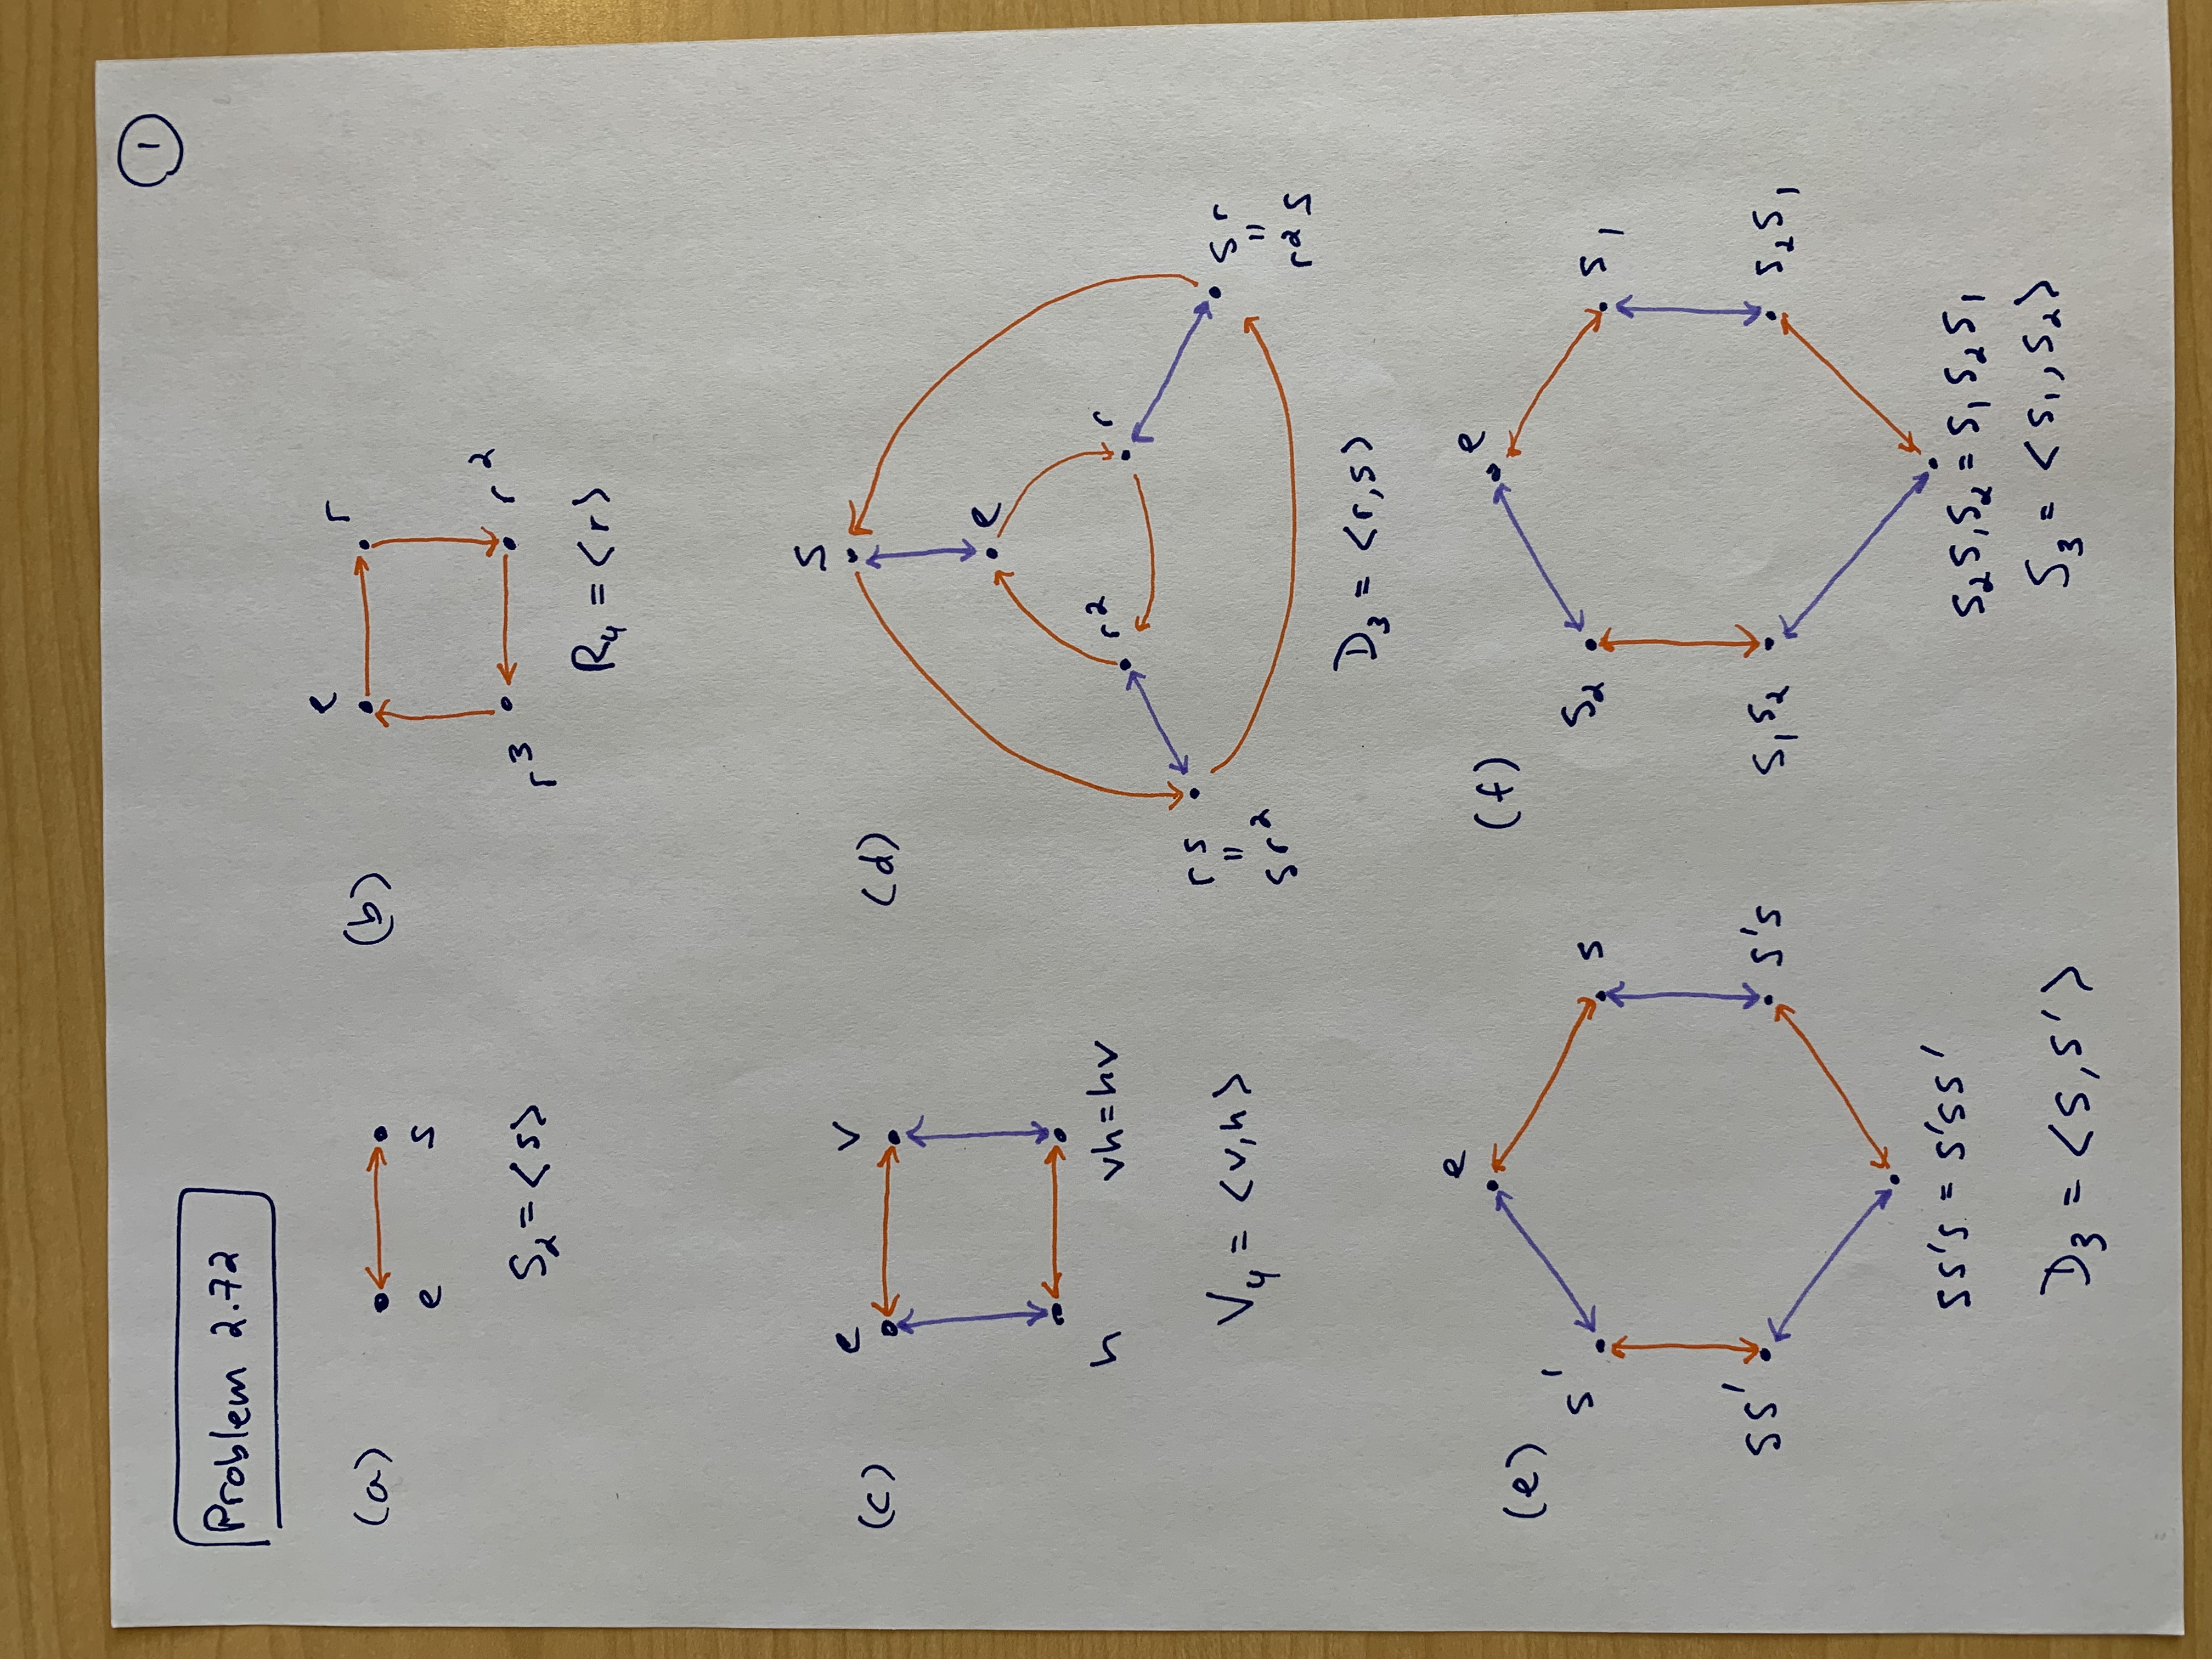 1
Problem 2.72
(a)
e
s
S₂ = ⟨s⟩
(b)
e
r
r³
r²
R₄ = ⟨r⟩
(c)
e
v
h
vh = hv
V₄ = ⟨v,h⟩
(d)
s
e
r²
r
rs
=
sr²
sr
=
r²s
D₃ = ⟨r,s⟩
(e)
e
s'
s
ss'
s's
ss's = s'ss'
D₃ = ⟨s,s'⟩
(f)
e
s₂
s₁
s₁s₂
s₂s₁
s₂s₁s₂ = s₁s₂s₁
S₃ = ⟨s₁,s₂⟩